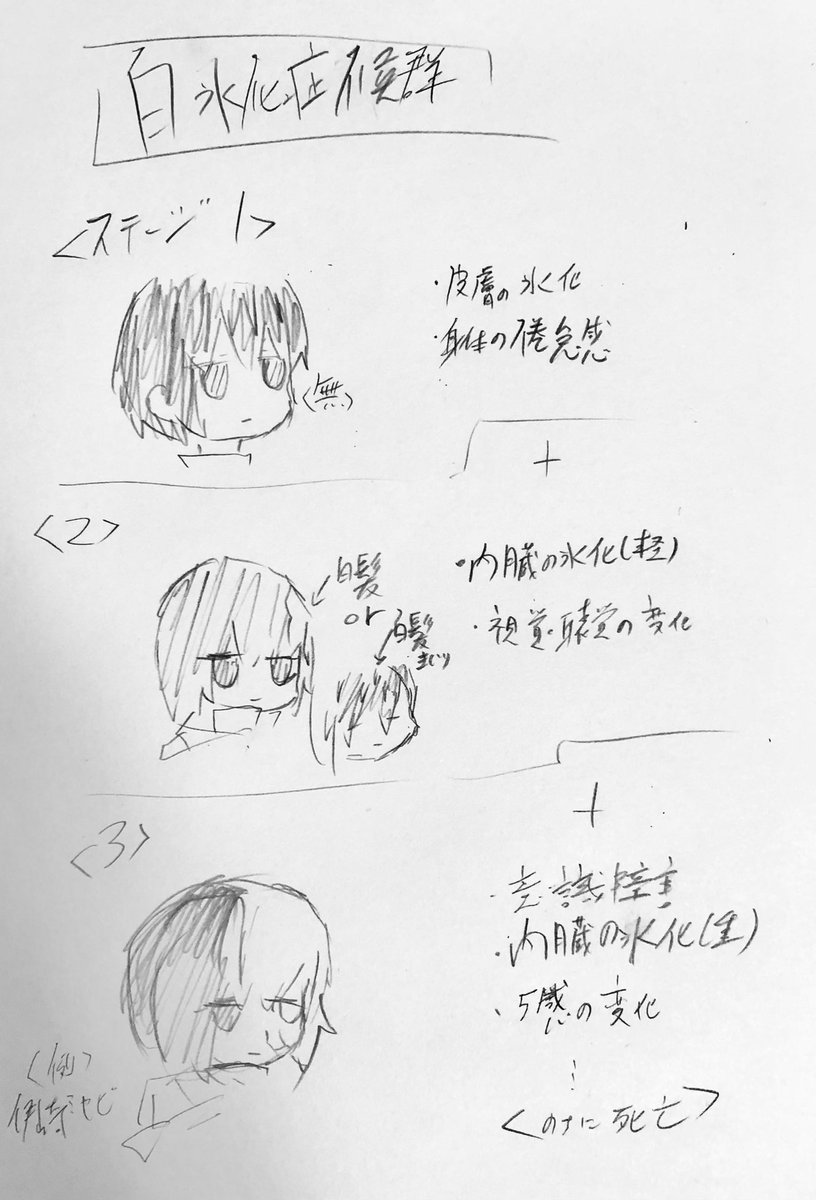 白氷化症候群
<ステージ1>
・皮膚の氷化
・身体の倦怠感
<無>
+
<2>
白髪
or
白髪
まじり
・内臓の氷化(軽)
・視覚・聴覚の変化
+
<3>
・意識障害
・内臓の氷化(重)
・5感の変化
<例>
伊崎ミヤビ
<のちに死亡>